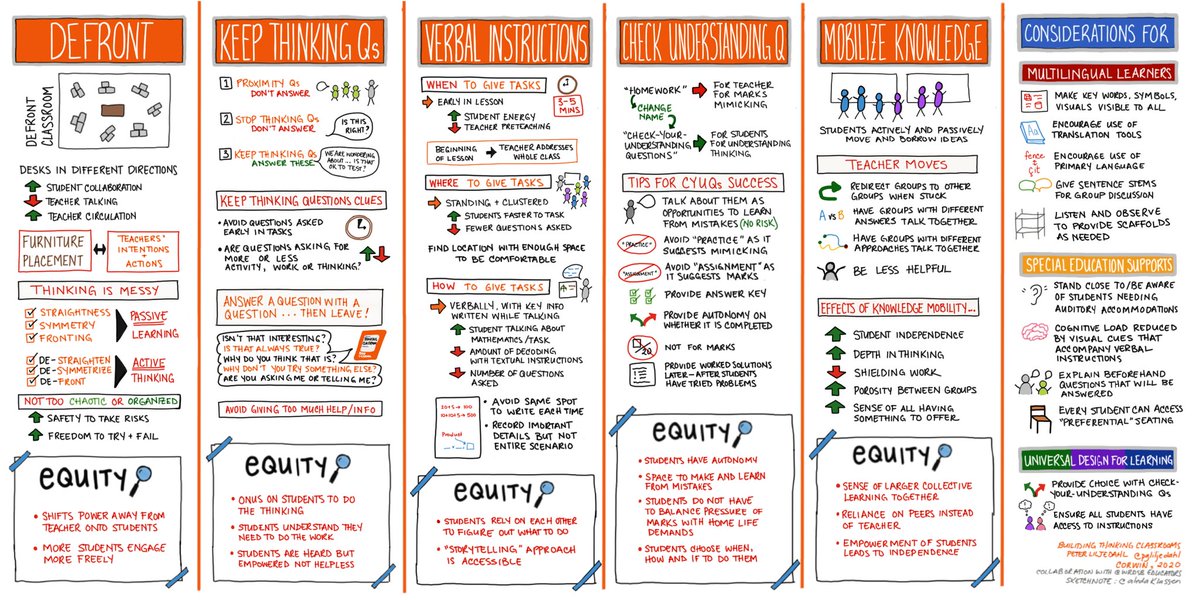 DEFRONT
DEFRONT
CLASSROOM
DESKS IN DIFFERENT DIRECTIONS
STUDENT COLLABORATION
TEACHER TALKING
TEACHER CIRCULATION
FURNITURE
PLACEMENT
TEACHERS'
INTENTIONS
+
ACTIONS
THINKING IS MESSY
STRAIGHTNESS
SYMMETRY
FRONTING
PASSIVE
LEARNING
DE-STRAIGHTEN
DE-SYMMETRIZE
DE-FRONT
ACTIVE
THINKING
NOT TOO CHAOTIC OR ORGANIZED
SAFETY TO TAKE RISKS
FREEDOM TO TRY + FAIL
EQUITY
• SHIFTS POWER AWAY FROM
TEACHER ONTO STUDENTS
• MORE STUDENTS ENGAGE
MORE FREELY
KEEP THINKING Qs
1 PROXIMITY Qs
DON'T ANSWER
2 STOP THINKING Qs
DON'T ANSWER
IS THIS
RIGHT?
3 KEEP THINKING Qs
ANSWER THESE
WE ARE WONDERING
ABOUT... IS THAT
OK TO TEST?
KEEP THINKING QUESTIONS CLUES
• AVOID QUESTIONS ASKED
EARLY IN TASKS
• ARE QUESTIONS ASKING FOR
MORE OR LESS
ACTIVITY, WORK OR THINKING?
ANSWER A QUESTION WITH A
QUESTION ... THEN LEAVE!
ISN'T THAT INTERESTING?
IS THAT ALWAYS TRUE?
WHY DO YOU THINK THAT IS?
WHY DON'T YOU TRY SOMETHING ELSE?
ARE YOU ASKING ME OR TELLING ME?
AVOID GIVING TOO MUCH HELP/INFO
EQUITY
• ONUS ON STUDENTS TO DO
THE THINKING
• STUDENTS UNDERSTAND THEY
NEED TO DO THE WORK
• STUDENTS ARE HEARD BUT
EMPOWERED NOT HELPLESS
VERBAL INSTRUCTIONS
WHEN TO GIVE TASKS
EARLY IN LESSON
3-5
MINS
STUDENT ENERGY
TEACHER PRETEACHING
BEGINNING
OF LESSON
TEACHER ADDRESSES
WHOLE CLASS
WHERE TO GIVE TASKS
STANDING + CLUSTERED
STUDENTS FASTER TO TASK
FEWER QUESTIONS ASKED
FIND LOCATION WITH ENOUGH SPACE
TO BE COMFORTABLE
HOW TO GIVE TASKS
VERBALLY, WITH KEY INFO
WRITTEN WHILE TALKING
STUDENT TALKING ABOUT
MATHEMATICS/TASK
AMOUNT OF DECODING
WITH TEXTUAL INSTRUCTIONS
NUMBER OF QUESTIONS
ASKED
• AVOID SAME SPOT
TO WRITE EACH TIME
• RECORD IMPORTANT
DETAILS BUT NOT
ENTIRE SCENARIO
EQUITY
• STUDENTS RELY ON EACH OTHER
TO FIGURE OUT WHAT TO DO
• "STORYTELLING" APPROACH
IS ACCESSIBLE
CHECK UNDERSTANDING Q
"HOMEWORK"
FOR TEACHER
FOR MARKS
MIMICKING
CHANGE
NAME
"CHECK-YOUR-
UNDERSTANDING
QUESTIONS"
FOR STUDENTS
FOR UNDERSTANDING
THINKING
TIPS FOR CYUQs SUCCESS
TALK ABOUT THEM AS
OPPORTUNITIES TO LEARN
FROM MISTAKES (NO RISK)
"PRACTICE"
AVOID "PRACTICE" AS IT
SUGGESTS MIMICKING
"ASSIGNMENT"
AVOID "ASSIGNMENT" AS
IT SUGGESTS MARKS
PROVIDE ANSWER KEY
PROVIDE AUTONOMY ON
WHETHER IT IS COMPLETED
/20
NOT FOR MARKS
PROVIDE WORKED SOLUTIONS
LATER-AFTER STUDENTS
HAVE TRIED PROBLEMS
EQUITY
• STUDENTS HAVE AUTONOMY
• SPACE TO MAKE AND LEARN
FROM MISTAKES
• STUDENTS DO NOT HAVE
TO BALANCE PRESSURE OF
MARKS WITH HOME LIFE
DEMANDS
• STUDENTS CHOOSE WHEN,
HOW AND IF TO DO THEM
MOBILIZE KNOWLEDGE
STUDENTS ACTIVELY AND PASSIVELY
MOVE AND BORROW IDEAS
TEACHER MOVES
REDIRECT GROUPS TO OTHER
GROUPS WHEN STUCK
A vs B
HAVE GROUPS WITH DIFFERENT
ANSWERS TALK TOGETHER
HAVE GROUPS WITH DIFFERENT
APPROACHES TALK TOGETHER
BE LESS HELPFUL
EFFECTS OF KNOWLEDGE MOBILITY...
STUDENT INDEPENDENCE
DEPTH IN THINKING
SHIELDING WORK
POROSITY BETWEEN GROUPS
SENSE OF ALL HAVING
SOMETHING TO OFFER
EQUITY
• SENSE OF LARGER COLLECTIVE
LEARNING TOGETHER
• RELIANCE ON PEERS INSTEAD
OF TEACHER
• EMPOWERMENT OF STUDENTS
LEADS TO INDEPENDENCE
CONSIDERATIONS FOR
MULTILINGUAL LEARNERS
MAKE KEY WORDS, SYMBOLS,
VISUALS VISIBLE TO ALL
Aa
ENCOURAGE USE OF
TRANSLATION TOOLS
ENCOURAGE USE OF
PRIMARY LANGUAGE
GIVE SENTENCE STEMS
FOR GROUP DISCUSSION
LISTEN AND OBSERVE
TO PROVIDE SCAFFOLDS
AS NEEDED
SPECIAL EDUCATION SUPPORTS
STAND CLOSE TO/BE AWARE
OF STUDENTS NEEDING
AUDITORY ACCOMMODATIONS
COGNITIVE LOAD REDUCED
BY VISUAL CUES THAT
ACCOMPANY VERBAL
INSTRUCTIONS
EXPLAIN BEFOREHAND
QUESTIONS THAT WILL BE
ANSWERED
EVERY STUDENT CAN ACCESS
"PREFERENTIAL" SEATING
UNIVERSAL DESIGN FOR LEARNING
PROVIDE CHOICE WITH CHECK-
YOUR-UNDERSTANDING Qs
ENSURE ALL STUDENTS HAVE
ACCESS TO INSTRUCTIONS
BUILDING THINKING CLASSROOMS
PETER LILJEDAHL @pgliljedahl
CORWIN, 2020
COLLABORATION WITH @WRDSB EDUCATORS
SKETCHNOTE: